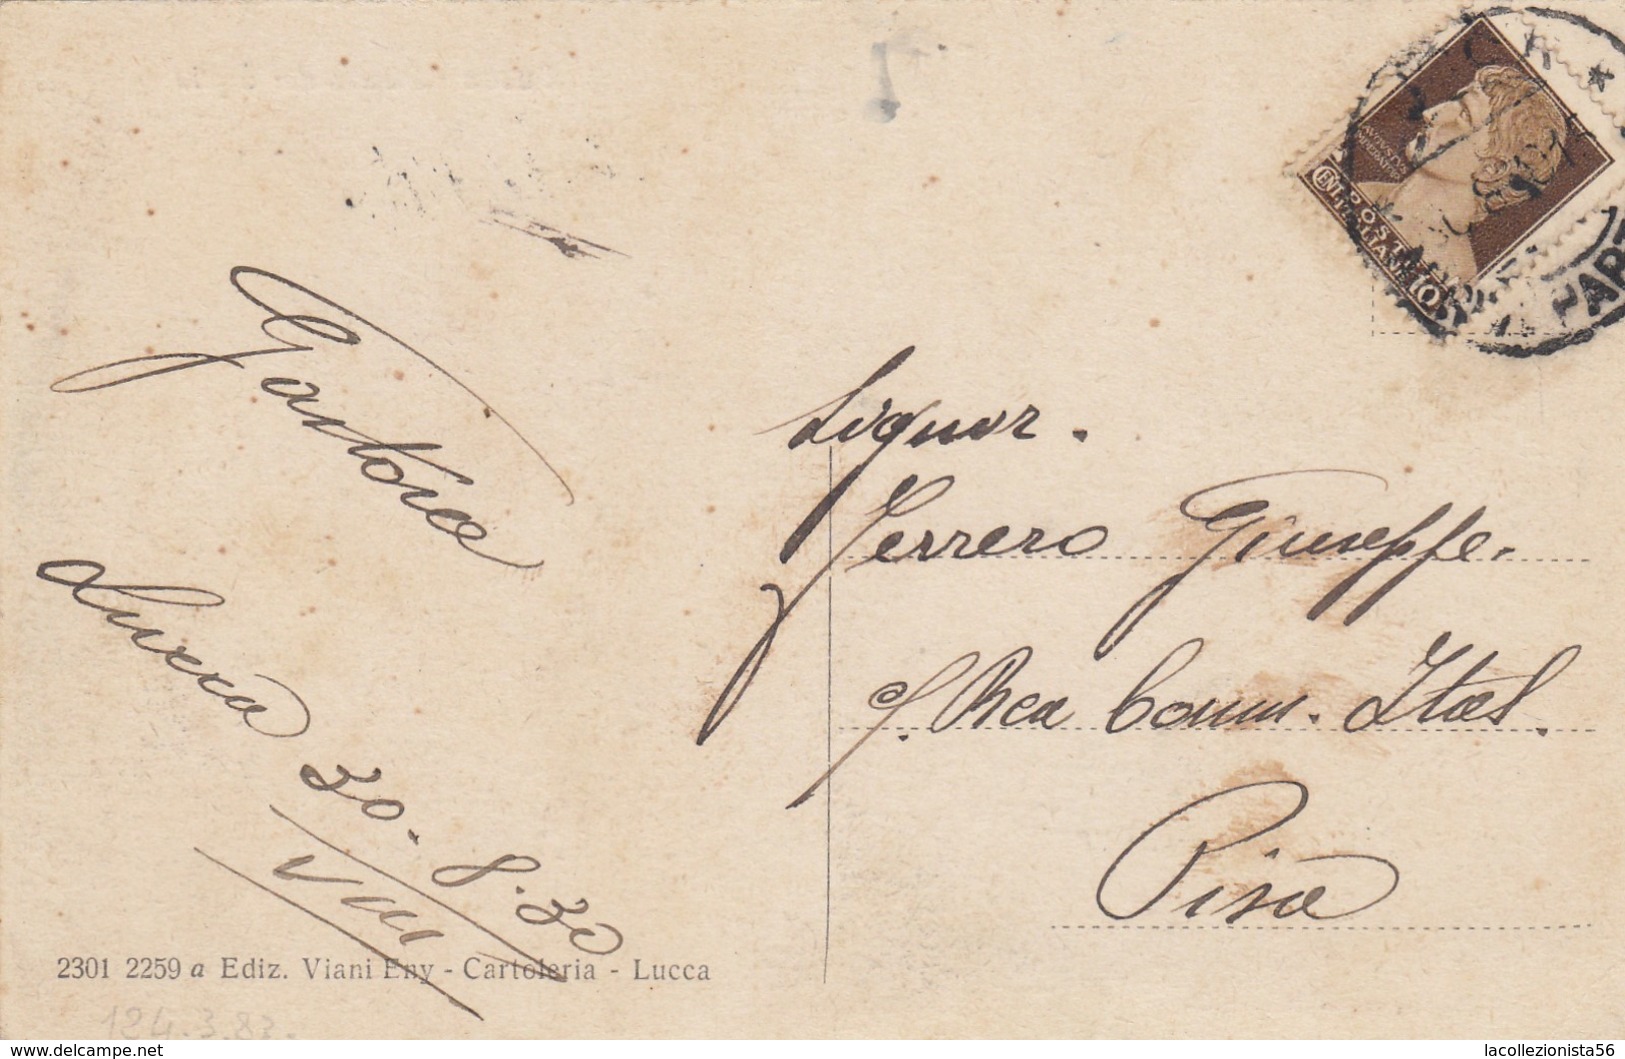 POSTE
ITALIANE
CENT. 10
Signor.
Ferrero Giuseppe.
c/. Bca Comm. Ital.
Pisa
Lucca
30.8.30
VIII
2301 2259 a Ediz. Viani Eny - Cartoleria - Lucca
124.3.83.
http://www.delcampe.net
lacollezionista56